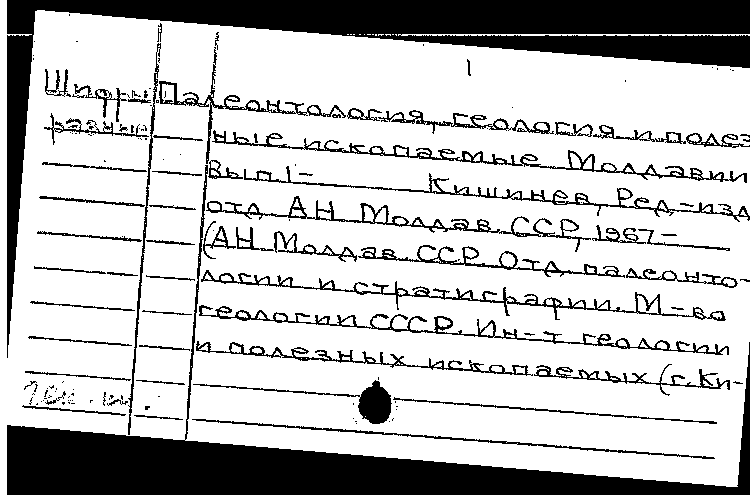 1
Шифры Палеонтология, геология и полез
разные ные ископаемые Молдавии
Вып. 1- Кишинев, Ред.-изд
отд АН Молдав. ССР, 1967-
(АН Молдав. ССР Отд палеонто-
логии и стратиграфии. М-во
геологии СССР. Ин-т геологии
и полезных ископаемых (г. Ки-